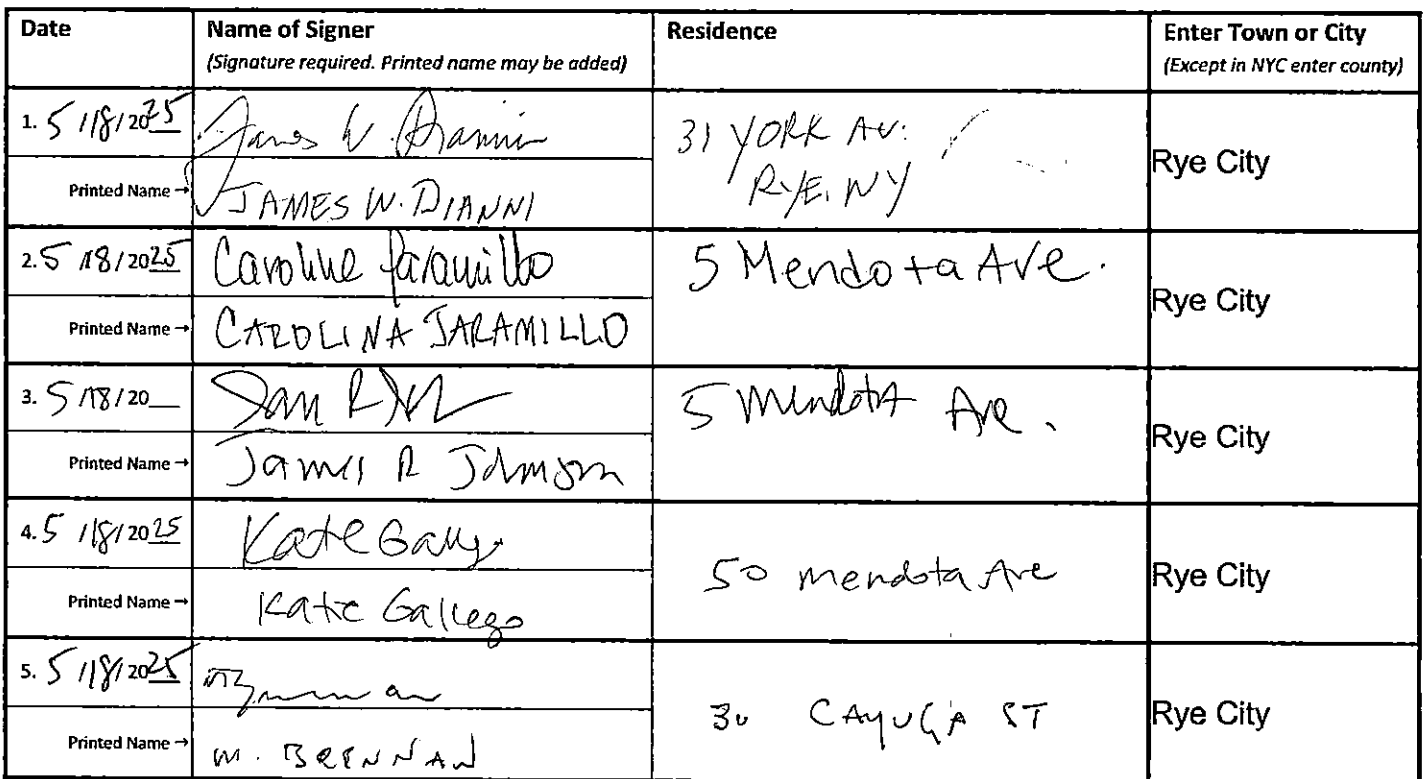 Date Name of Signer Residence Enter Town or City
(Signature required. Printed name may be added) (Except in NYC enter county)
1. 5/18/2025 James W. Dianni 31 YORK AV.
RYE, NY Rye City
Printed Name → JAMES W. DIANNI
2. 5/18/2025 Caroline Jaramillo 5 Mendota Ave. Rye City
Printed Name → CAROLINA JARAMILLO
3. 5/18/20__ 5 Mendota Ave. Rye City
Printed Name → James R Johnson
4. 5/18/2025 Kate Galleg 50 mendota Ave Rye City
Printed Name → Katie Gallego
5. 5/18/2025 30 CAYUGA ST Rye City
Printed Name → M. BRENNAN